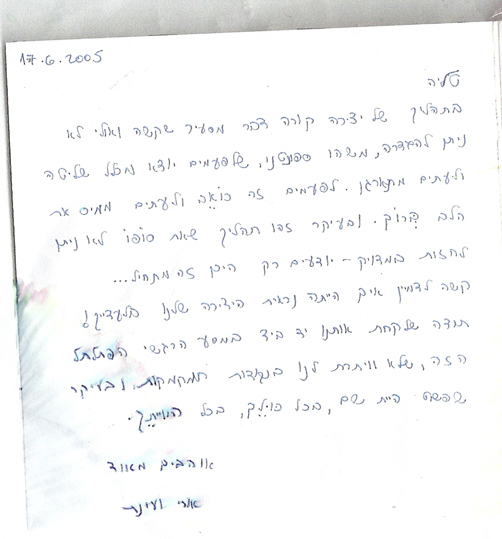 17.6.2005
טליה
בתהליך של יצירה קורה דבר מסעיר שקשה ואולי לא
ניתן להגדרה, משהו ספונטני, שלפעמים יוצא מכלל שליטה
ולעתים מתארגן. לפעמים זה כואב ולעתים ממיס את
הלב בְּרוֹךְ. ובעיקר זהו תהליך שאת סופו לא ניתן
לחזות במדויק – יודעים רק היכן זה מתחיל...
קשה לדמיין איך הייתה נראית היצירה שלנו בלעדייך!
תודה שלקחת אותנו יד ביד במסע הרגשי הפתלתל
הזה, שלא וויתרת לנו בנקודות המתחמקות, ובעיקר
שפשוט היית שם, בכל כולֵךְ, בכל הווייתֵךְ.
אוהבים מאוד
אורי ועינת